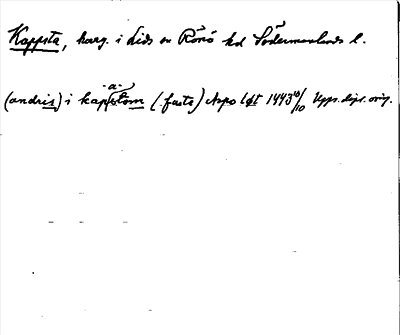 Kappsta, herrg. i Lids sn Rönö hd Södermanlands l.
-a-
(andris) i kapstom (fasta) Aspo löt 1443 10/10 Upps. dipl. orig.